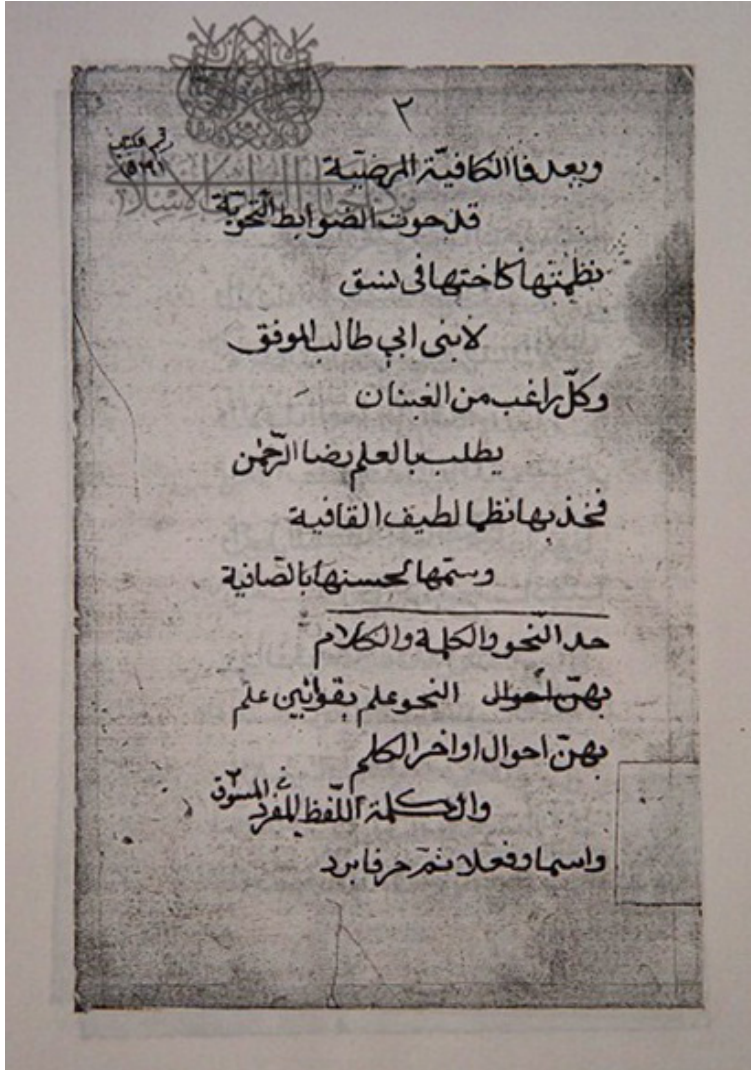 ٢
وبعد فالكافيّة المرضيّة
قد حوت الضوابط النّحويّة
نظمتها كاختها في نسق
لابني ابي طالب الموفق
وكلّ راغب من الفتيان
يطلب بالعلم رضا الرّحمن
فخذ بها نظما لطيف القافية
وسمّها لحسنها بالصّافية
حد النّحو والكلمة والكلام
بهنّ احوال النحو علم بقوانين علم
بهنّ احوال اواخر الكلم
والكلمة اللّفظ المفرد
واسما وفعلا ثمّ حرفا يرد